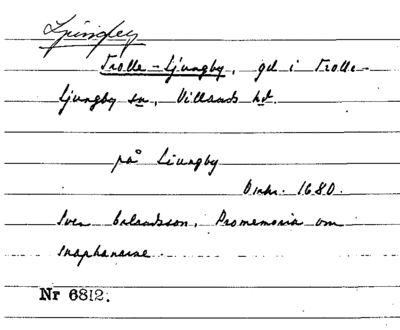 Ljungby
Trolle-Ljungby, gd i Trolle-
Ljungby sn, Villands hd.
på Liungby
Omkr. 1680.
Sven Erlandsson, Promemoria om
snaphanarne
Nr 6812.